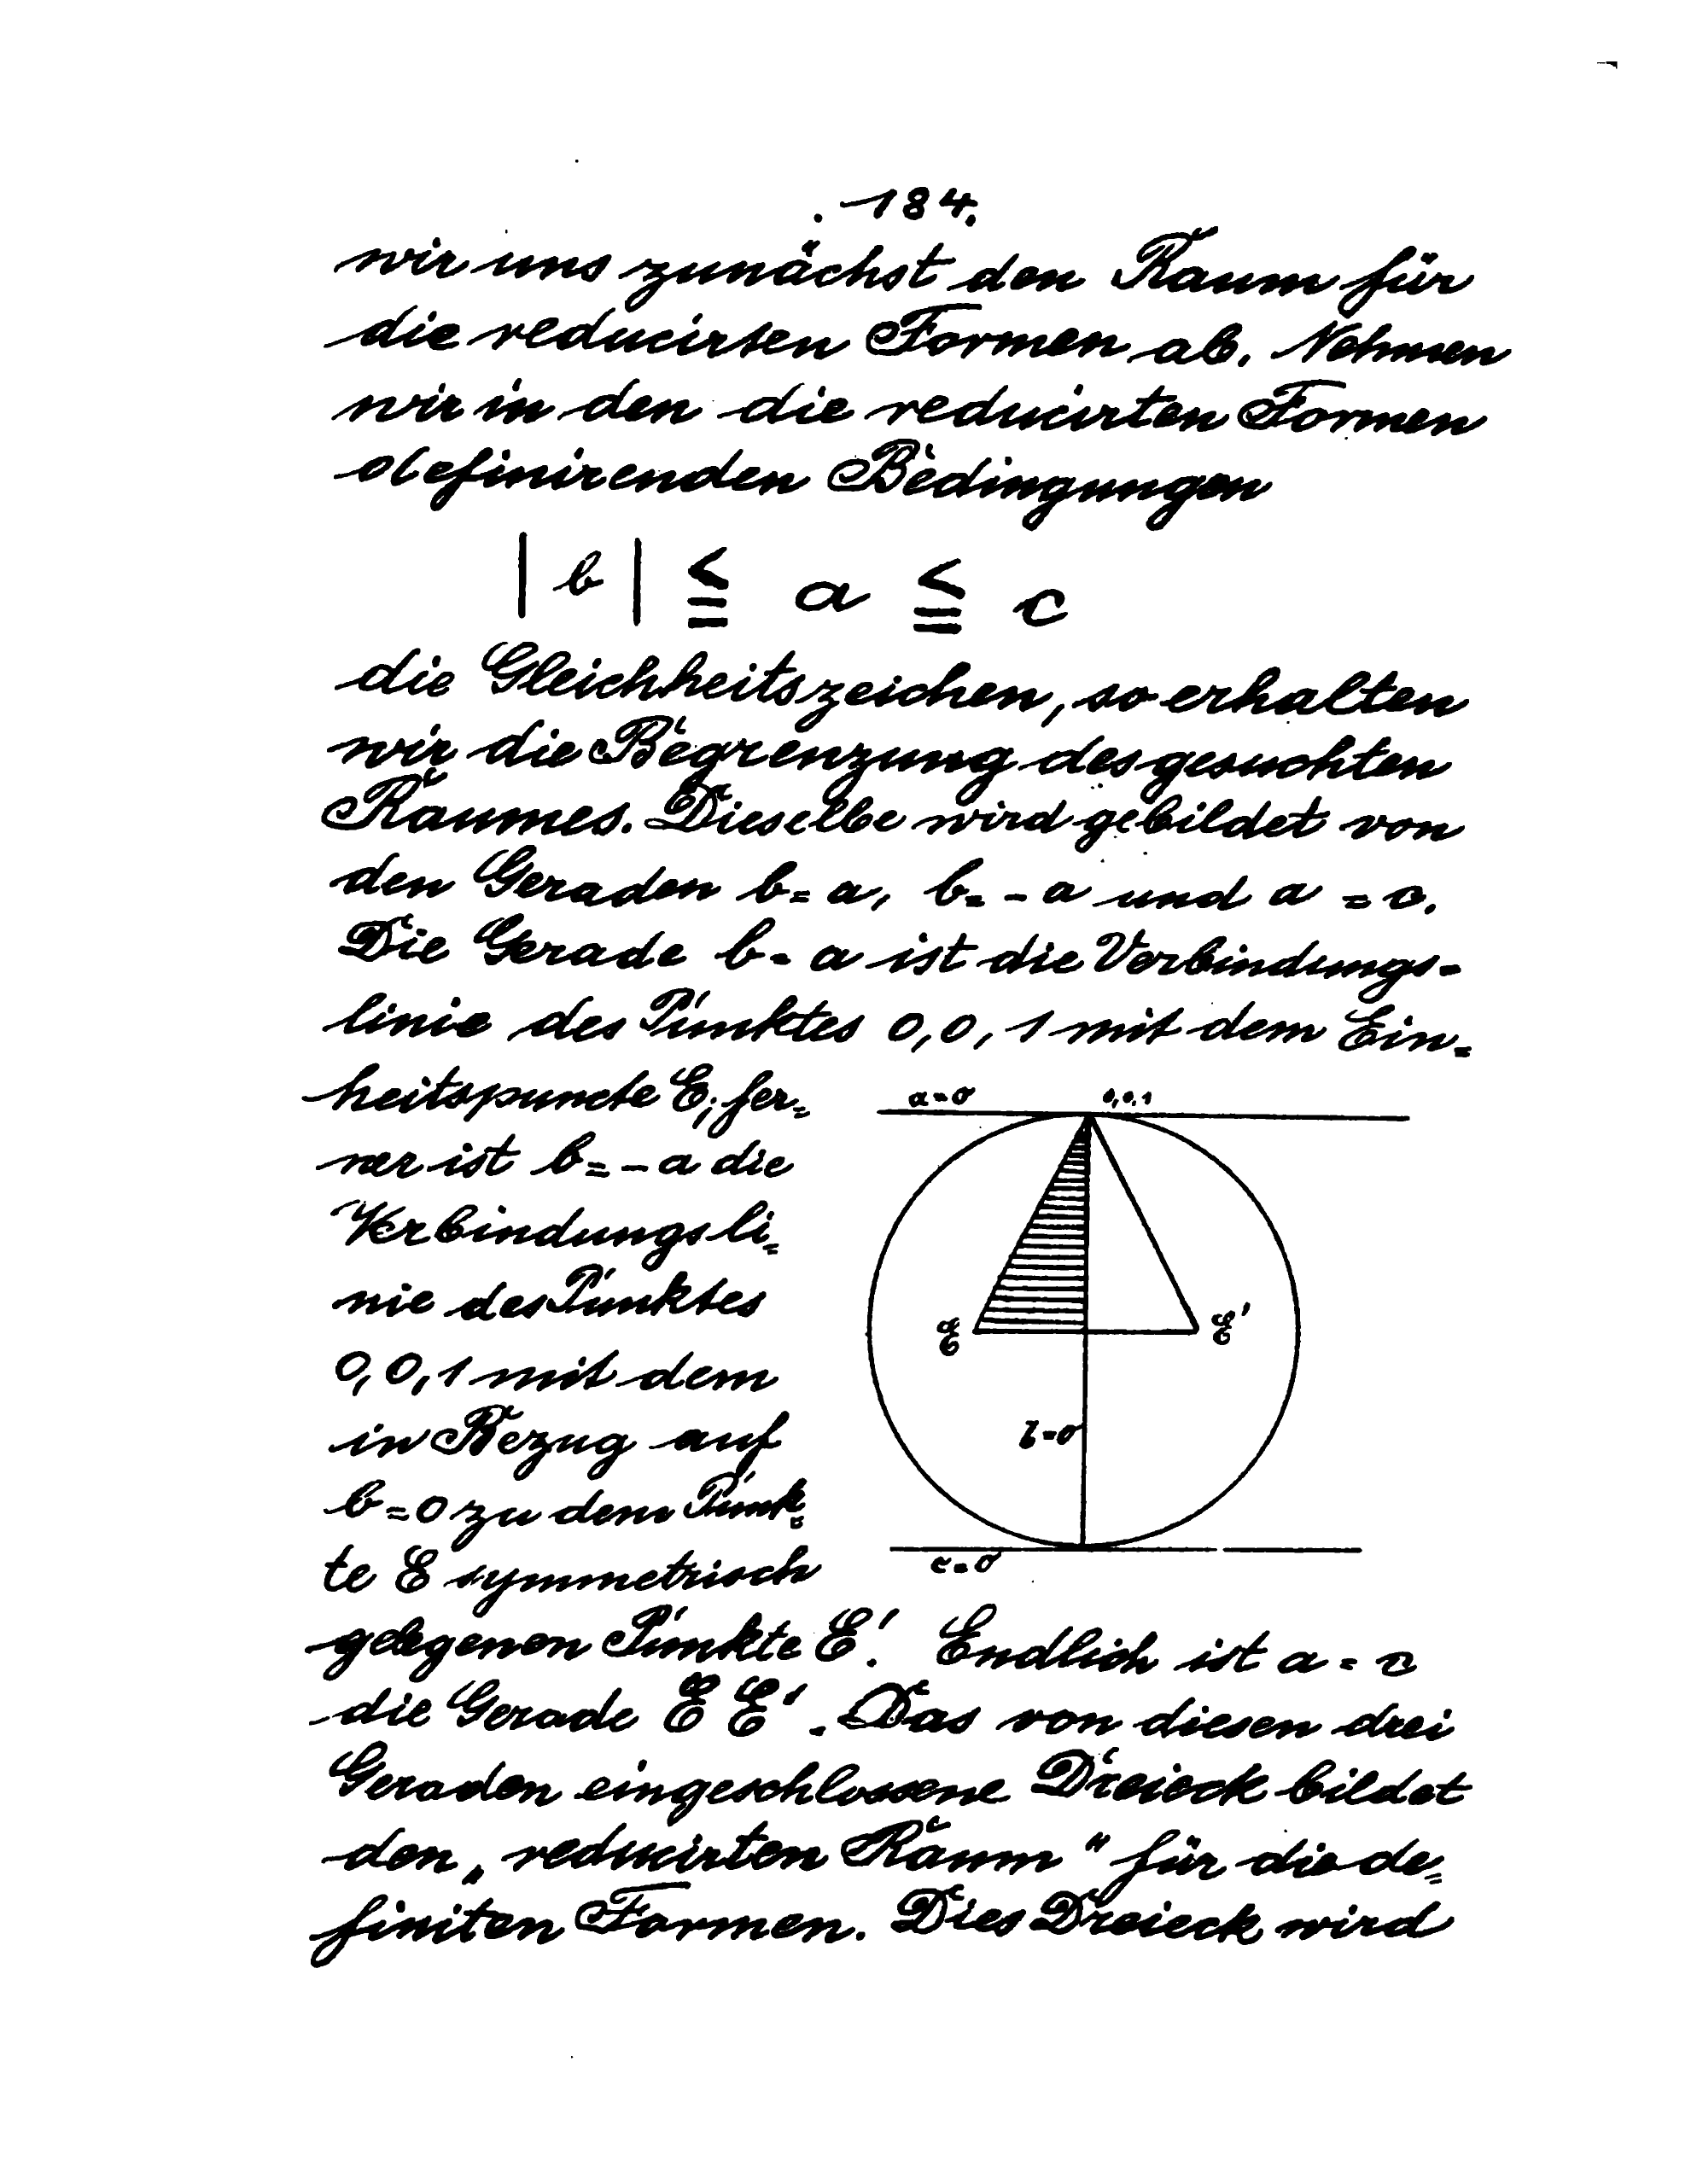 . 184.
wir uns zunächst den Raum für
die reducirten Formen ab. Nehmen
wir in den die reducirten Formen
definirenden Bedingungen
|b| ≦ a ≦ c
die Gleichheitszeichen, so erhalten
wir die Begrenzung des gesuchten
Raumes. Dieselbe wird gebildet von
den Geraden b = a, b = - a und a = c.
Die Gerade b = a ist die Verbindungs-
linie des Punktes 0,0,1 mit dem Ein-
heitspuncte E; fer-
ner ist b = - a die
Verbindungsli-
nie des Punktes
0,0,1 mit dem
in Bezug auf
b = 0 zu dem Punk-
te E symmetrisch
gelegenen Punkte E'. Endlich ist a = c
die Gerade E E'. Das von diesen drei
Geraden eingeschlossene Dreieck bildet
den „reducirten Raum“ für die de-
finiten Formen. Dies Dreieck wird
a = 0
0,0,1
E
E'
b = 0
c = 0